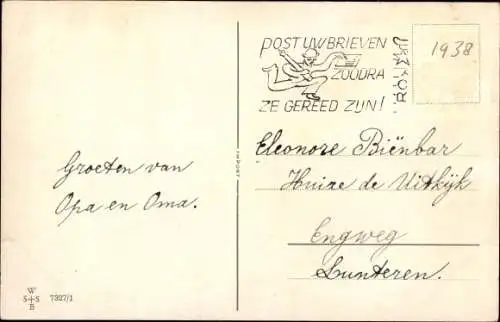 POST UW BRIEVEN
ZOODRA
ZE GEREED ZIJN!
1938
Groeten van
Opa en Oma.
IMPORT
Eleonore Biënbar
Huize de Uitkijk
Engweg
Lunteren.
W
S+S
B
7327/1